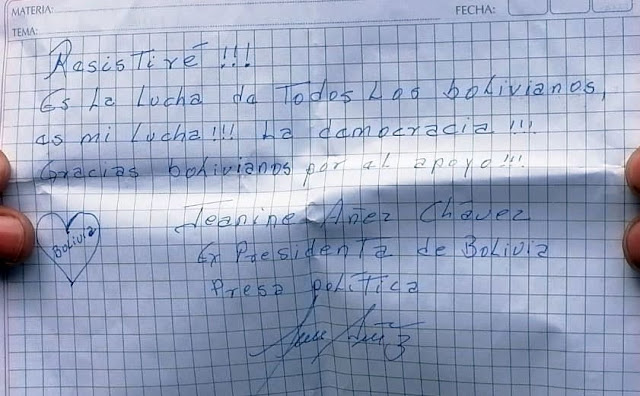 MATERIA:
FECHA:
TEMA:
Resistiré !!!
Es La Lucha de Todos Los bolivianos,
es mi Lucha!!! La democracia !!!
Gracias bolivianos por el apoyo!!!
Jeanine Añez Chávez
Ex Presidenta de Bolivia
Presa política
Bolivia